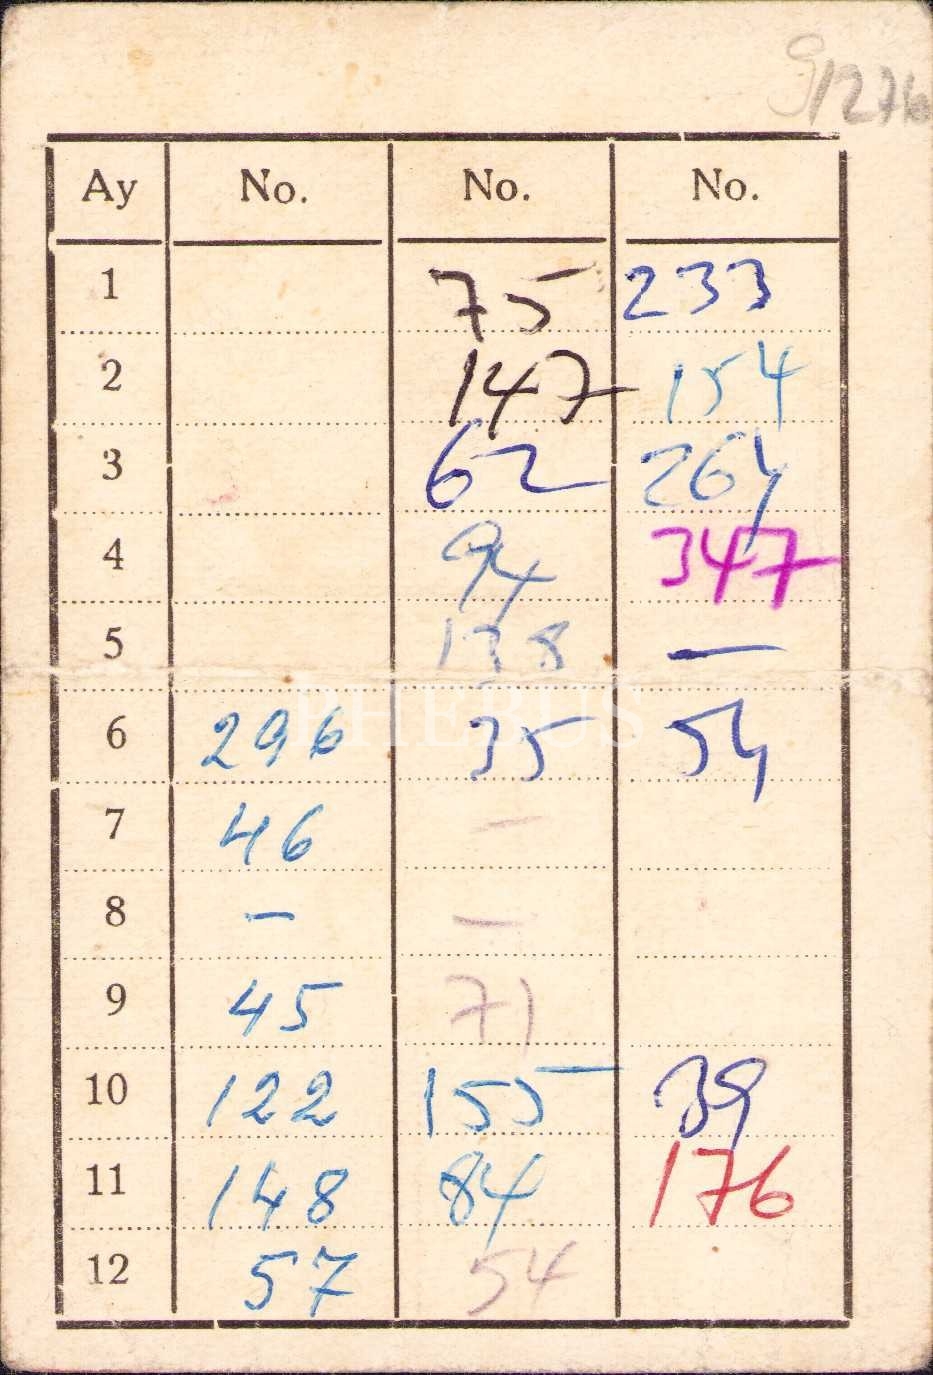 91276
Ay No. No. No.
1 75 233
2 147 154
3 62 264
4 94 347
5 138 —
6 296 35 54
7 46 —
8 — —
9 45 71
10 122 155 39
11 148 84 176
12 57 54
PHEBUS